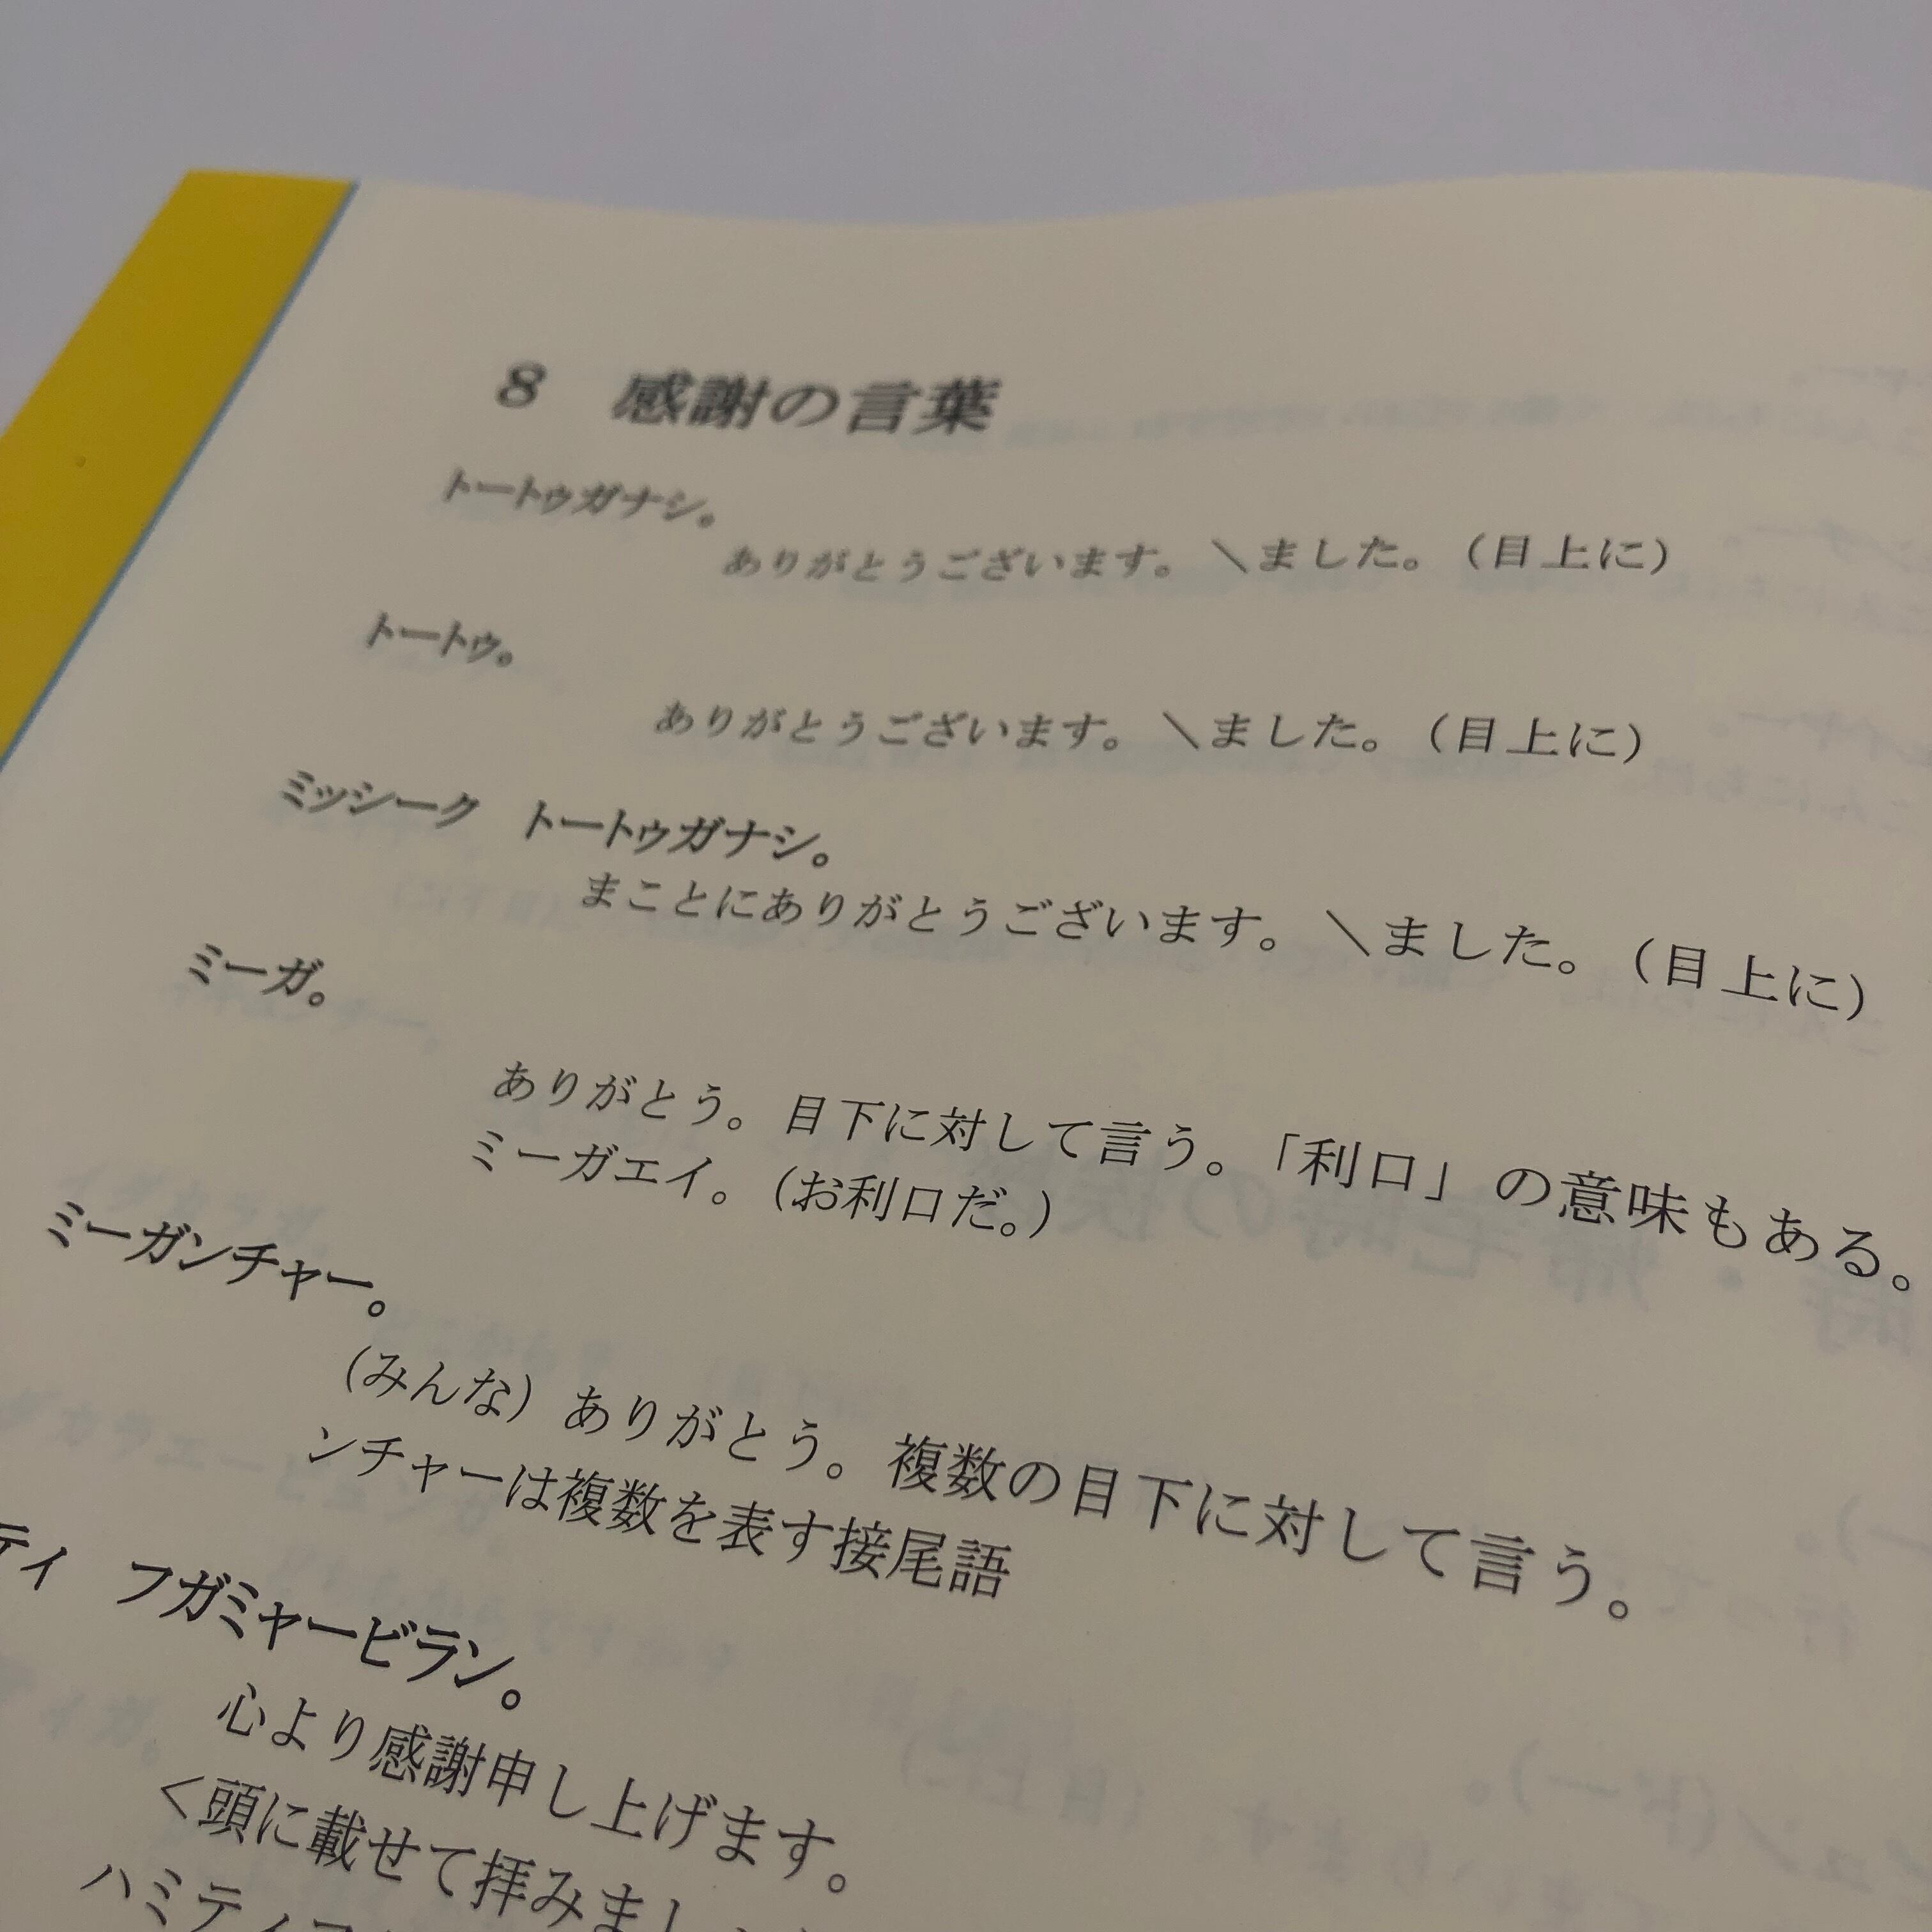 8 感謝の言葉
トートゥガナシ。
ありがとうございます。＼ました。（目上に）
トートゥ。
ありがとうございます。＼ました。（目上に）
ミッシーク トートゥガナシ。
まことにありがとうございます。＼ました。（目上に）
ミーガ。
ありがとう。目下に対して言う。「利口」の意味もある。
ミーガエイ。（お利口だ。）
ミーガンチャー。
（みんな）ありがとう。複数の目下に対して言う。
ンチャーは複数を表す接尾語
ティ フガミャービラン。
心より感謝申し上げます。
＜頭に載せて拝みまし
ハミティ